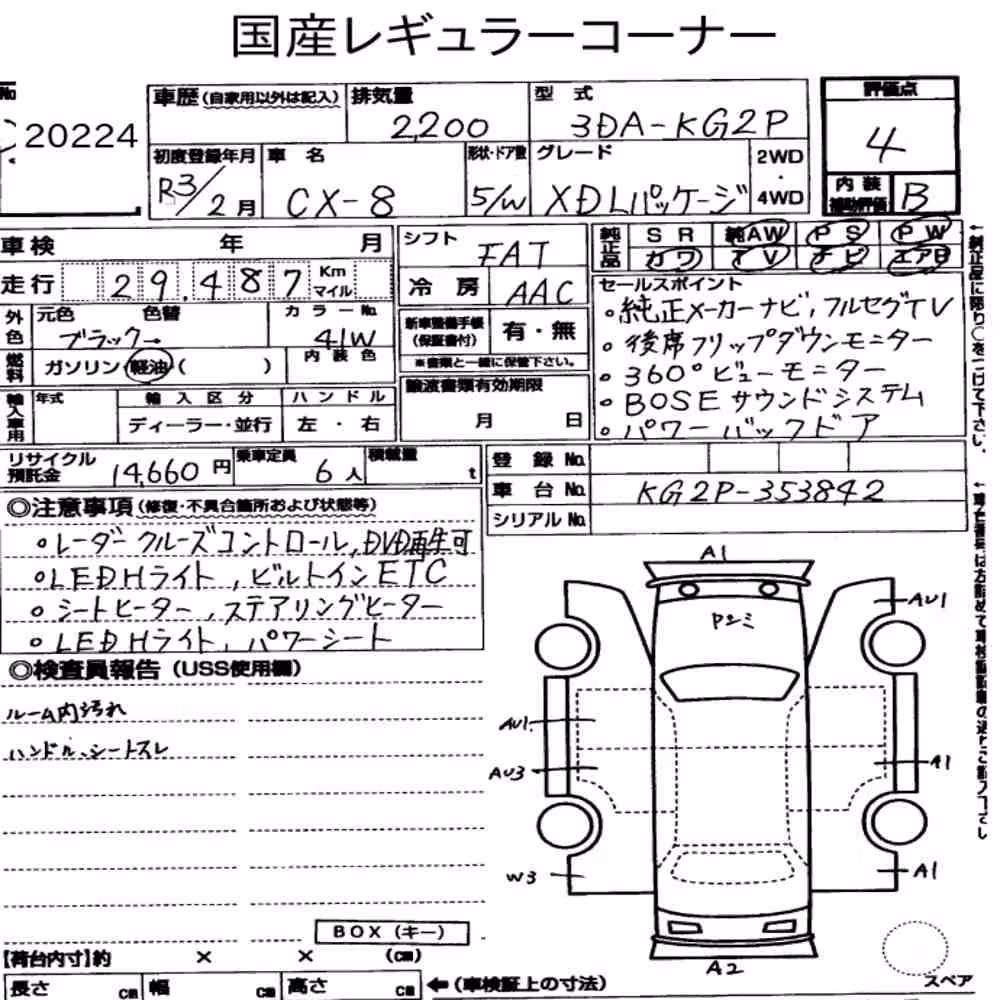 国産レギュラーコーナー
No
20224
車歴(自家用以外は記入)
排気量
2,200
型 式
3DA-KG2P
評価点
4
初度登録年月
R3/2月
車 名
CX-8
形状・ドア数
5/W
グレード
XDLパッケージ
2WD
・
4WD
内 装
補助評価
B
車検 年 月
走行 29.487 Km
マイル
シフト
FAT
冷 房
AAC
純正品
SR 純AW PS PW
カワ TV ナビ エアB
外色
元色 色替
ブラック→
カラーNo.
41W
燃料
ガソリン・軽油・( )
内 装 色
新車整備手帳
(保証書付)
有・無
※書類と一緒に保管下さい。
セールスポイント
。純正メーカーナビ,フルセグTV
。後席フリップダウンモニター
。360°ビューモニター
。BOSEサウンドシステム
。パワーバックドア
輸入車用
年式
輸 入 区 分
ディーラー・並行
ハ ン ド ル
左 ・ 右
譲渡書類有効期限
月 日
リサイクル
預託金
14,660 円
乗車定員
6 人
積載量
t
登 録 No.
車 台 No. KG2P-353842
シリアル No.
◎注意事項(修復・不具合箇所および状態等)
。レーダークルーズコントロール,DVD再生可
。LEDHライト,ビルトインETC
。シートヒーター,ステアリングヒーター
。LEDHライト,パワーシート
◎検査員報告(USS使用欄)
ルーム内汚れ
ハンドル、シートスレ
A1
Pシミ
AU1
AU1
AU3
A1
W3
A1
A2
BOX(キー)
【荷台内寸】約 × × (cm)
長さ cm 幅 cm 高さ cm
←(車検証上の寸法)
スペア
↑純正品に限り○をつけて下さい。